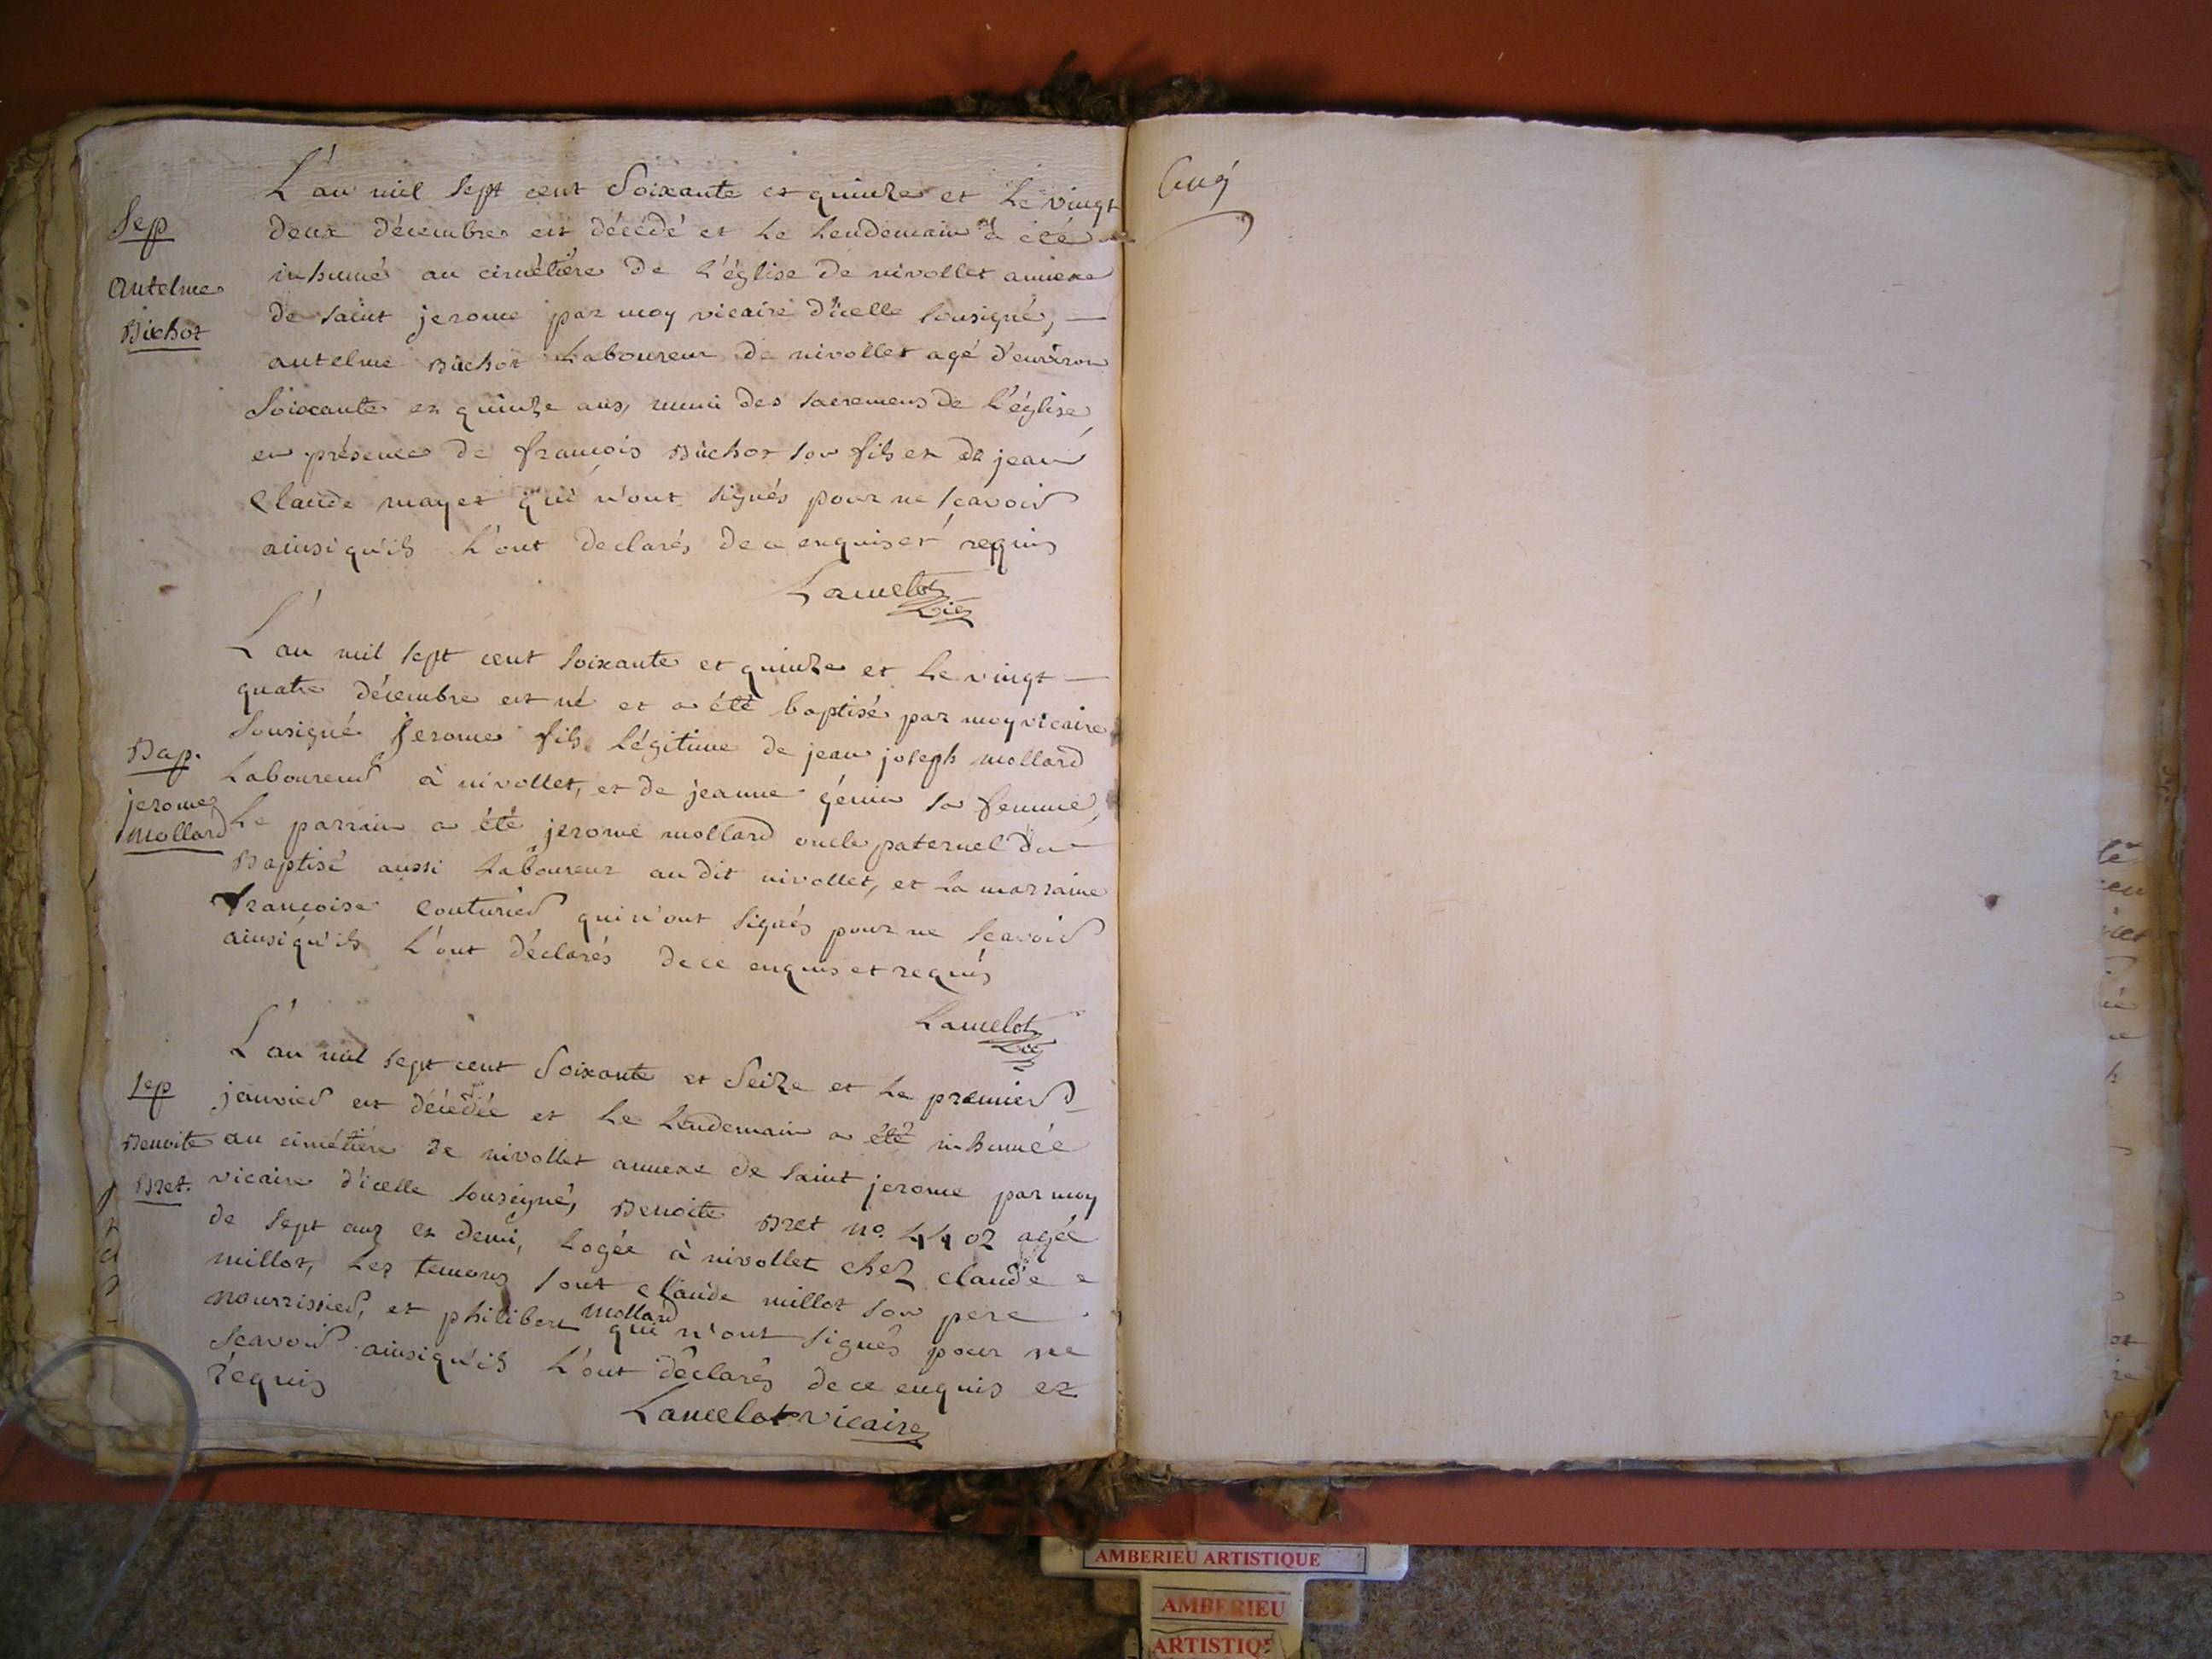 L'an mil sept cent Soixante et quinze et le vingt
Sep
deux décembre est décédé et le lendemain a été
Antelme
Buchot
inhumé au cimétiére de l'église de nivollet annexe
de saint jerome par moy vicaire d'icelle sousigné,
antelme Buchot Laboureur de nivollet agé d'environ
Soixante et quinze ans, muni des sacremens de l'église,
en présence de françois Buchot son fils et de jean
Claude mayet qui n'ont signés pour ne scavoir
ainsi qu'ils l'ont declarés de ce enquis et requis
Lancelot
Vic
L'an mil sept cent soixante et quinze et le vingt
quatre décembre est né et a été baptisé par moy vicaire
sousigné Jerome fils légitime de jean joseph mollard
Bap.
jerome
mollard
Laboureur à nivollet, et de jeanne génin sa femme,
Le parrain a été jerome mollard oncle paternel du
Baptisé aussi laboureur au dit nivollet, et la marraine
françoise Couturier qui n'ont signés pour ne scavoir
ainsi qu'ils l'ont déclarés de ce enquis et requis
Lancelot
Vic
L'an mil sept cent Soixante et Seize et le premier
Sep
Benoite
Bret.
janvier est décédée et le lendemain a été inhumée
au cimétiére de nivollet annexe de saint jerome par moy
vicaire d'icelle sousigné, Benoite Bret no. 4402 agée
de sept anz et demi, logée à nivollet chez claude
millot, Les temoins sont claude millot son pere
nourrissier, et philibert mollard qui n'ont signés pour ne
scavoir ainsi qu'ils l'ont déclarés de ce enquis et
requis
Lancelot vicaire
AMBERIEU ARTISTIQUE
AMBERIEU
ARTISTIQUE